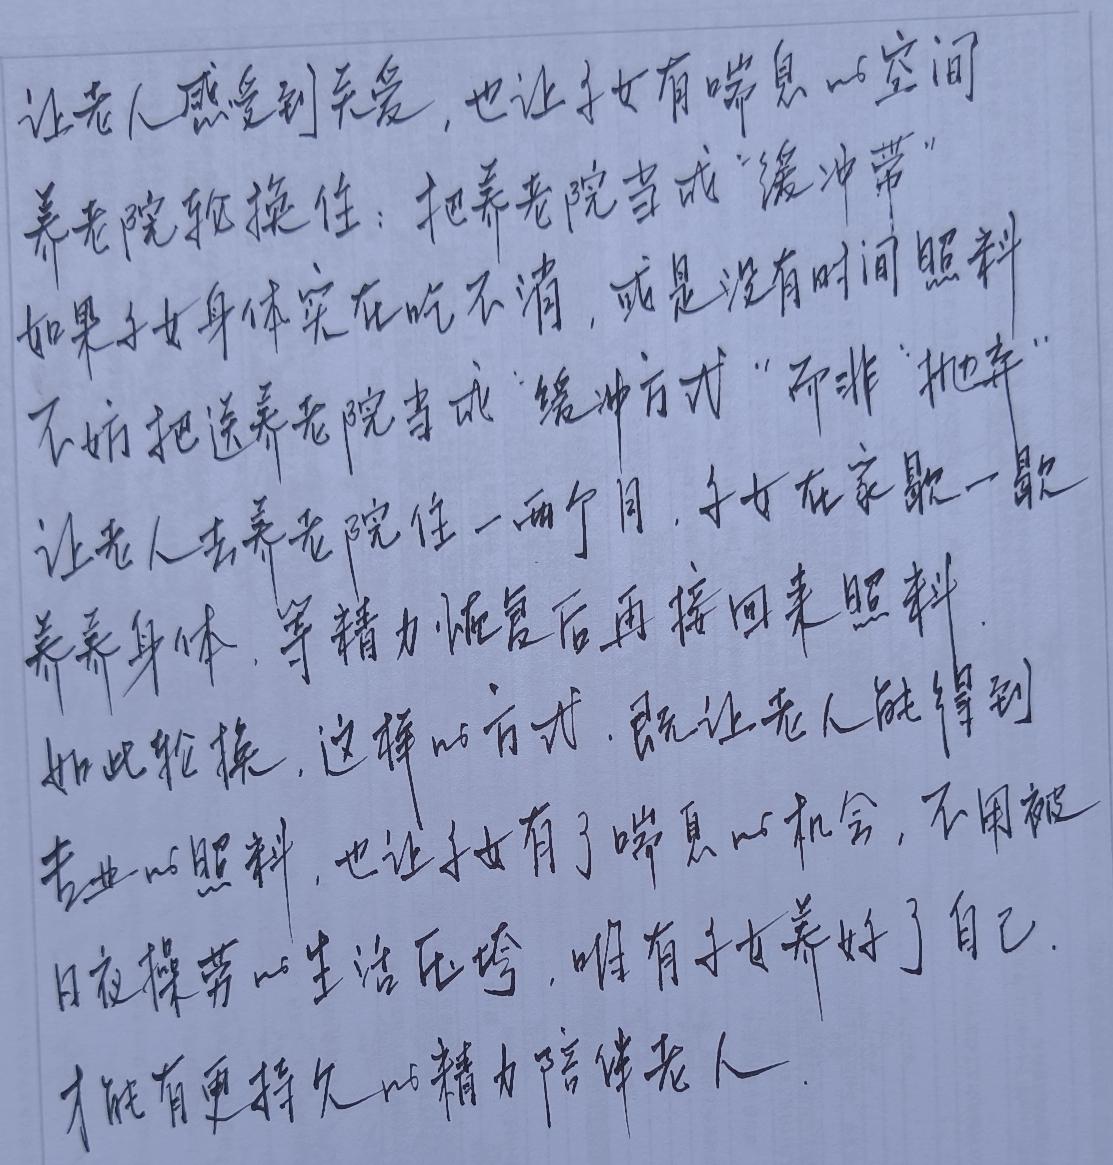 让老人感受到关爱,也让子女有喘息的空间
养老院轮换住:把养老院当成“缓冲带”
如果子女身体实在吃不消,或是没有时间照料
不妨把送养老院当成“缓冲方式”而非“抛弃”
让老人去养老院住一两个月,子女在家歇一歇
养养身体,等精力恢复后再接回来照料.
如此轮换,这样的方式.既让老人能得到
专业的照料,也让子女有了喘息的机会,不用被
日夜操劳的生活压垮,唯有子女养好了自己.
才能有更持久的精力陪伴老人.